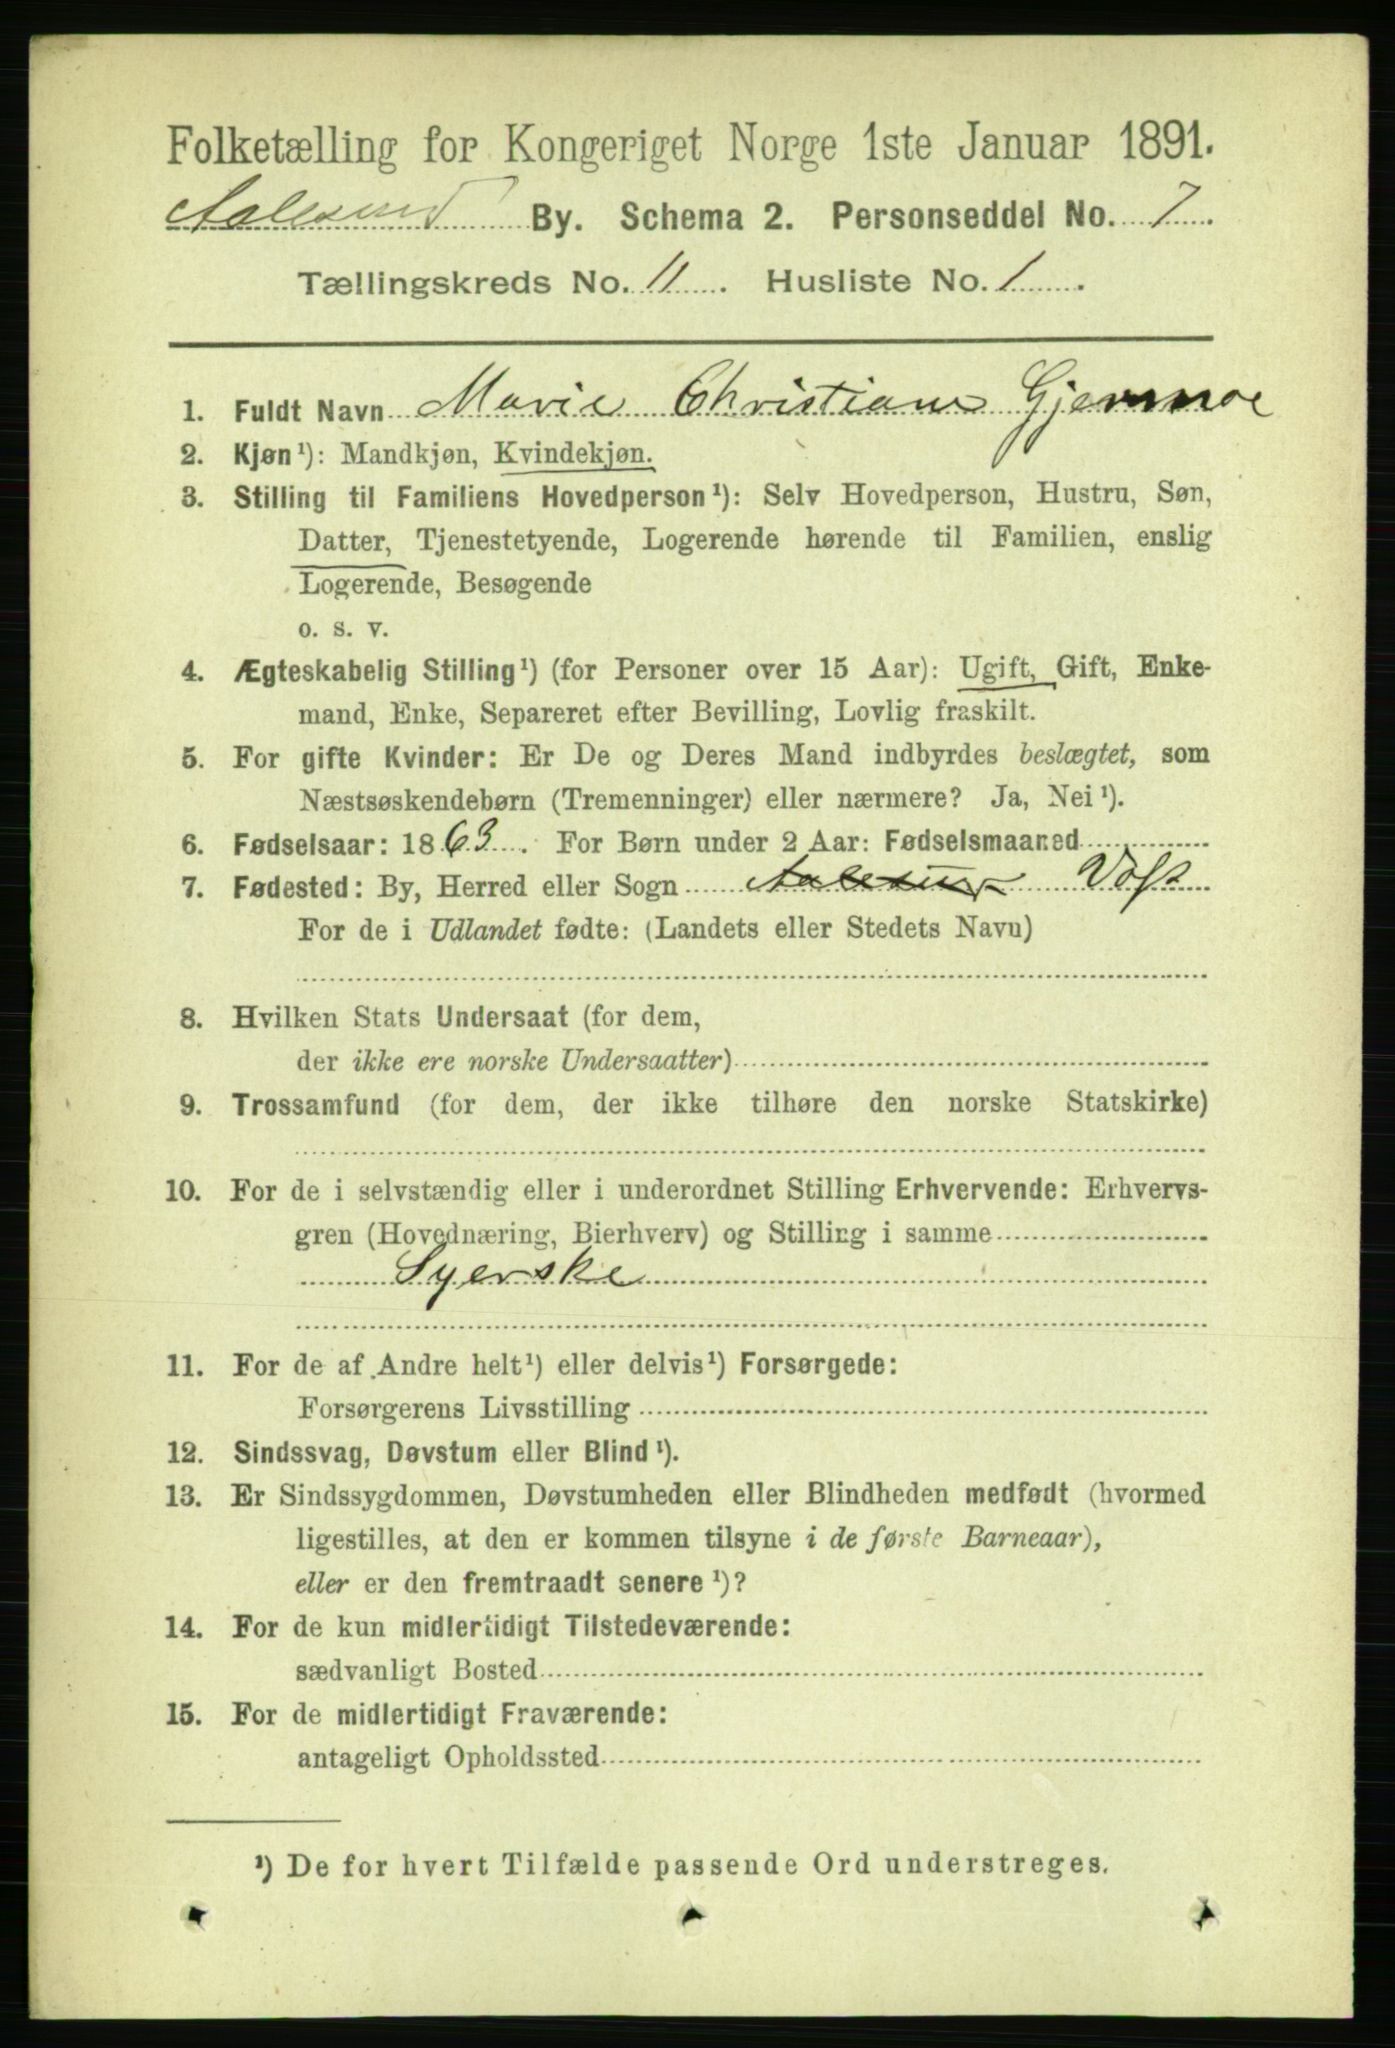 Folketælling for Kongeriget Norge 1ste Januar 1891.
Aalesund By. Schema 2. Personseddel No. 7.
Tællingskreds No. 11. Husliste No. 1.
1. Fuldt Navn Marie Christiane Gjermoe
2. Kjøn¹): Mandkjøn, Kvindekjøn.
3. Stilling til Familiens Hovedperson¹): Selv Hovedperson, Hustru, Søn,
Datter, Tjenestetyende, Logerende hørende til Familien, enslig
Logerende, Besøgende
o. s. v.
4. Ægteskabelig Stilling¹) (for Personer over 15 Aar): Ugift, Gift, Enke-
mand, Enke, Separeret efter Bevilling, Lovlig fraskilt.
5. For gifte Kvinder: Er De og Deres Mand indbyrdes beslægtet, som
Næstsøskendebørn (Tremenninger) eller nærmere? Ja, Nei¹).
6. Fødselsaar: 1863. For Børn under 2 Aar: Fødselsmaaned
7. Fødested: By, Herred eller Sogn Aalesund Vols
For de i Udlandet fødte: (Landets eller Stedets Navn)
8. Hvilken Stats Undersaat (for dem,
der ikke ere norske Undersaatter)
9. Trossamfund (for dem, der ikke tilhøre den norske Statskirke)
10. For de i selvstændig eller i underordnet Stilling Erhvervende: Erhvervs-
gren (Hovednæring, Bierhverv) og Stilling i samme
Syerske
11. For de af Andre helt¹) eller delvis¹) Forsørgede:
Forsørgerens Livsstilling
12. Sindssvag, Døvstum eller Blind¹).
13. Er Sindssygdommen, Døvstumheden eller Blindheden medfødt (hvormed
ligestilles, at den er kommen tilsyne i de første Barneaar),
eller er den fremtraadt senere¹)?
14. For de kun midlertidigt Tilstedeværende:
sædvanligt Bosted
15. For de midlertidigt Fraværende:
antageligt Opholdssted
¹) De for hvert Tilfælde passende Ord understreges.